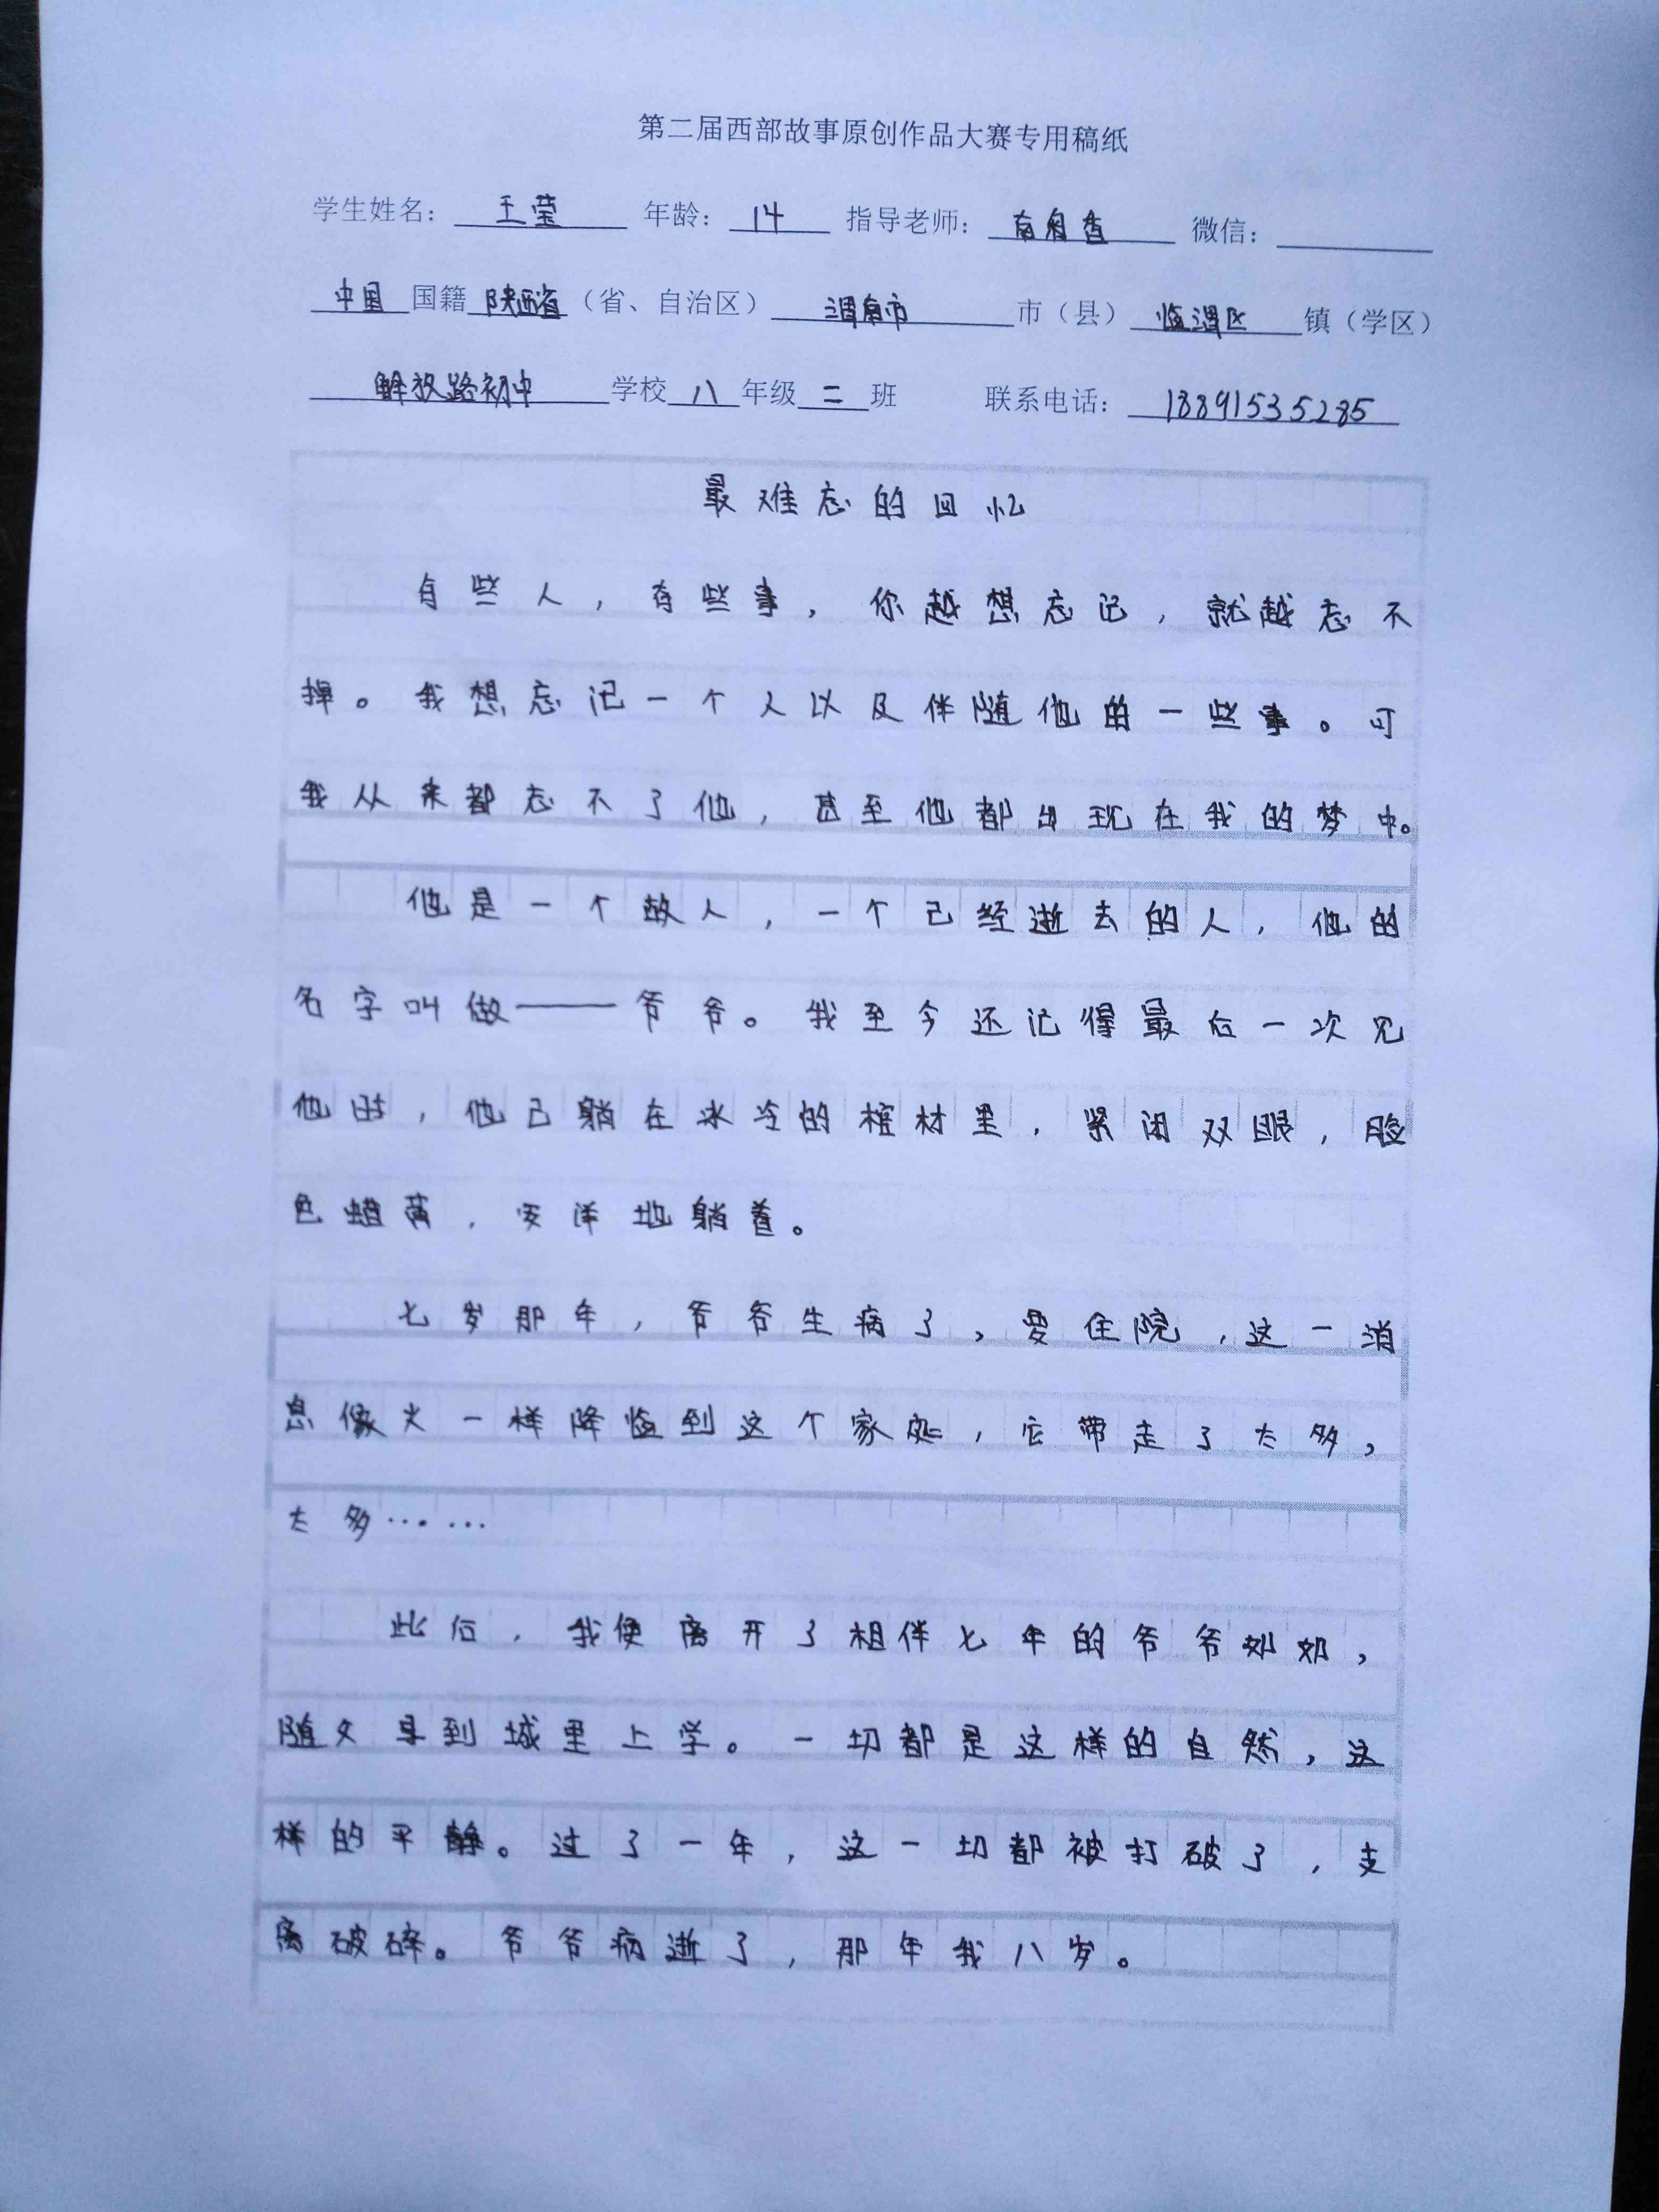 第二届西部故事原创作品大赛专用稿纸
学生姓名：王莹 年龄：14 指导老师： 微信：
中国国籍陕西省（省、自治区）渭南市市（县）临渭区镇（学区）
解放路初中学校八年级二班 联系电话：18891535285
最难忘的回忆
有些人，有些事，你越想忘记，就越忘不
掉。我想忘记一个人以及伴随他的一些事。可
我从来都忘不了他，甚至他都出现在我的梦中。
他是一个故人，一个已经逝去的人，他的
名字叫做——爷爷。我至今还记得最后一次见
他时，他已躺在冰冷的棺材里，紧闭双眼，脸
色蜡黄，安详地躺着。
七岁那年，爷爷生病了，要住院，这一消
息像火一样降临到这个家处，它带走了太多，
太多……
此后，我便离开了相伴七年的爷爷奶奶，
随父母到城里上学。一切都是这样的自然，这
样的平静。过了一年，这一切都被打破了，支
离破碎。爷爷病逝了，那年我八岁。